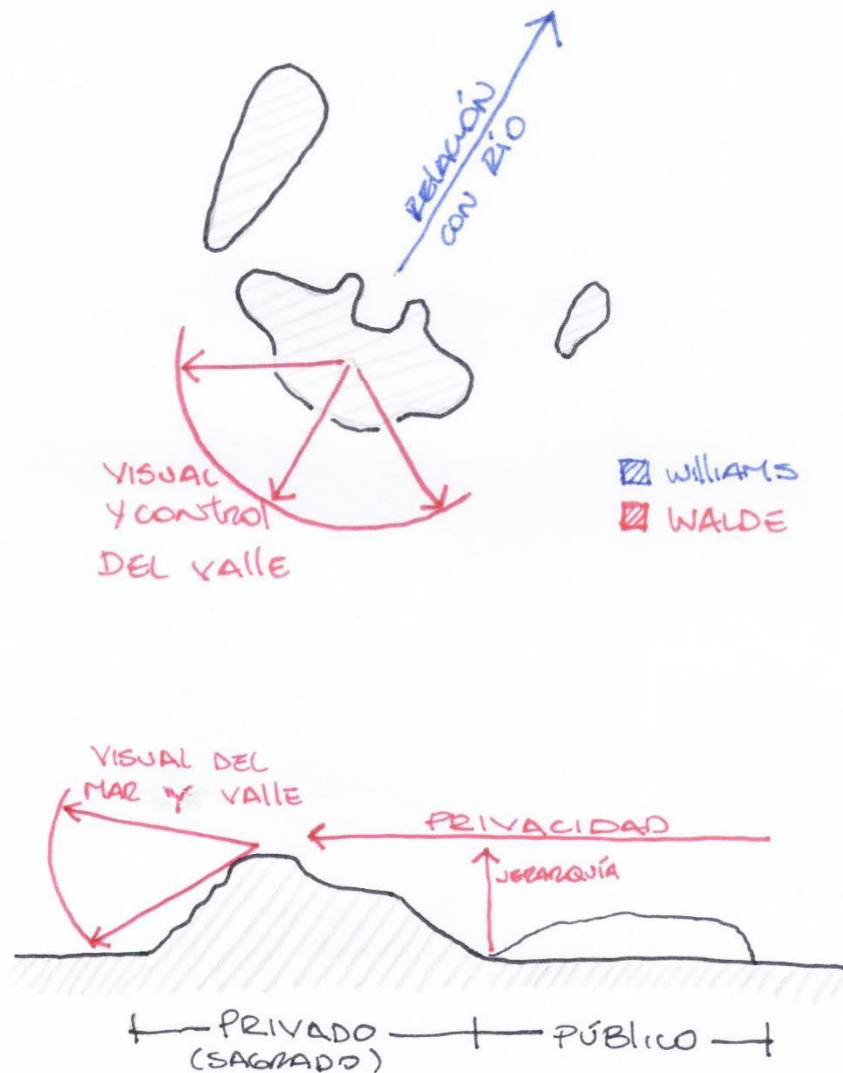 RELACIÓN
CON RÍO
VISUAL
Y CONTROL
DEL VALLE
WILLIAMS
WALDE
VISUAL DEL
MAR Y VALLE
PRIVACIDAD
JERARQUÍA
PRIVADO
(SAGRADO)
PÚBLICO